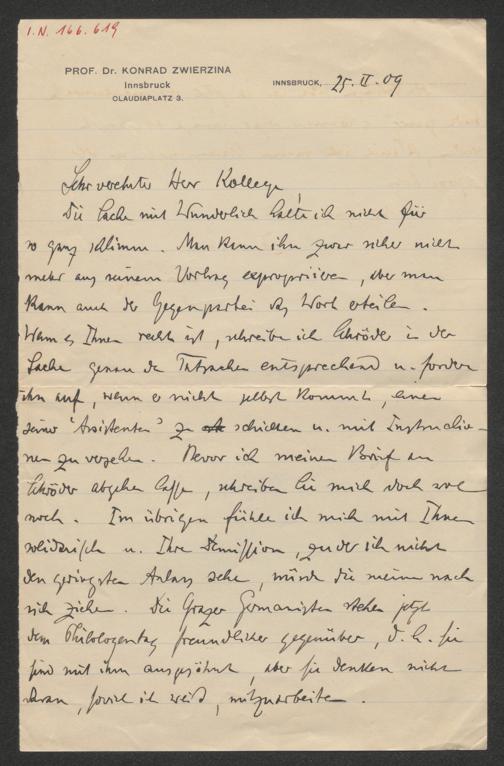 I.N. 166.619
PROF. Dr. KONRAD ZWIERZINA
Innsbruck
CLAUDIAPLATZ 3.
INNSBRUCK, 25. II. 09
Sehr verehrter Herr Kollege,
Die Sache mit Wunderlich halte ich nicht für
so ganz schlimm. Man kann ihn zwar sicher nicht
mehr aus seinem Vortrag expropriieren, aber man
kann auch der Gegenpartei das Wort erteilen.
Wenn es Ihnen recht ist, schreibe ich Schröder in der
Sache genau den Tatsachen entsprechend u. fordere
ihn auf, wenn er nicht selbst kommt, einen
seiner "Assistenten" zu schicken u. mit Instructio-
nen zu versehen. Bevor ich meinen Brief an
Schröder abgehen lasse, schreiben Sie mich doch
noch. Im übrigen fühle ich mich mit Ihnen
solidarisch u. Ihre Demission, zu der ich nicht
den geringsten Anlass sehe, würde die meine nach
sich ziehen. Die Grazer Germanisten stehen jetzt
dem Philologentag freundlicher gegenüber, d. h. sie
sind mit ihm ausgesöhnt, aber sie denken nicht
daran, soviel ich weiß, mitzuarbeiten.